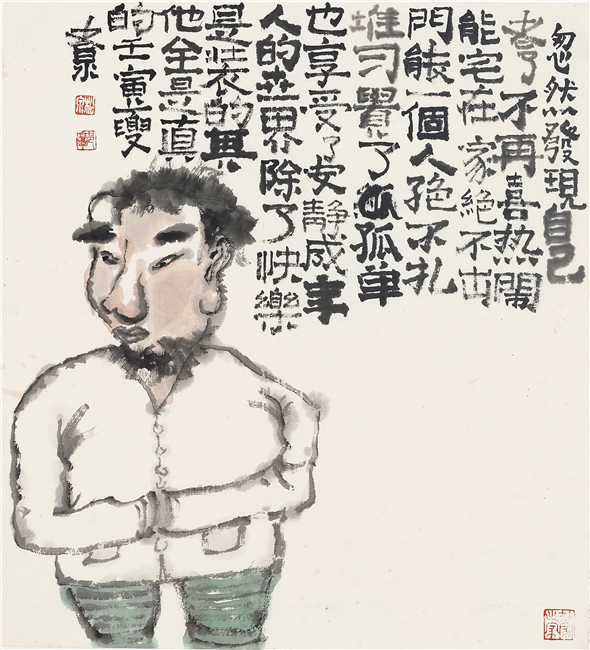 忽然發現自己
老了不再喜热鬧
能宅在家絕不出
門能一個人绝不扎
堆习覺了孤單
也享受了安静成年
人的世界除了快樂
是装的其
他全是真
的壬寅夏